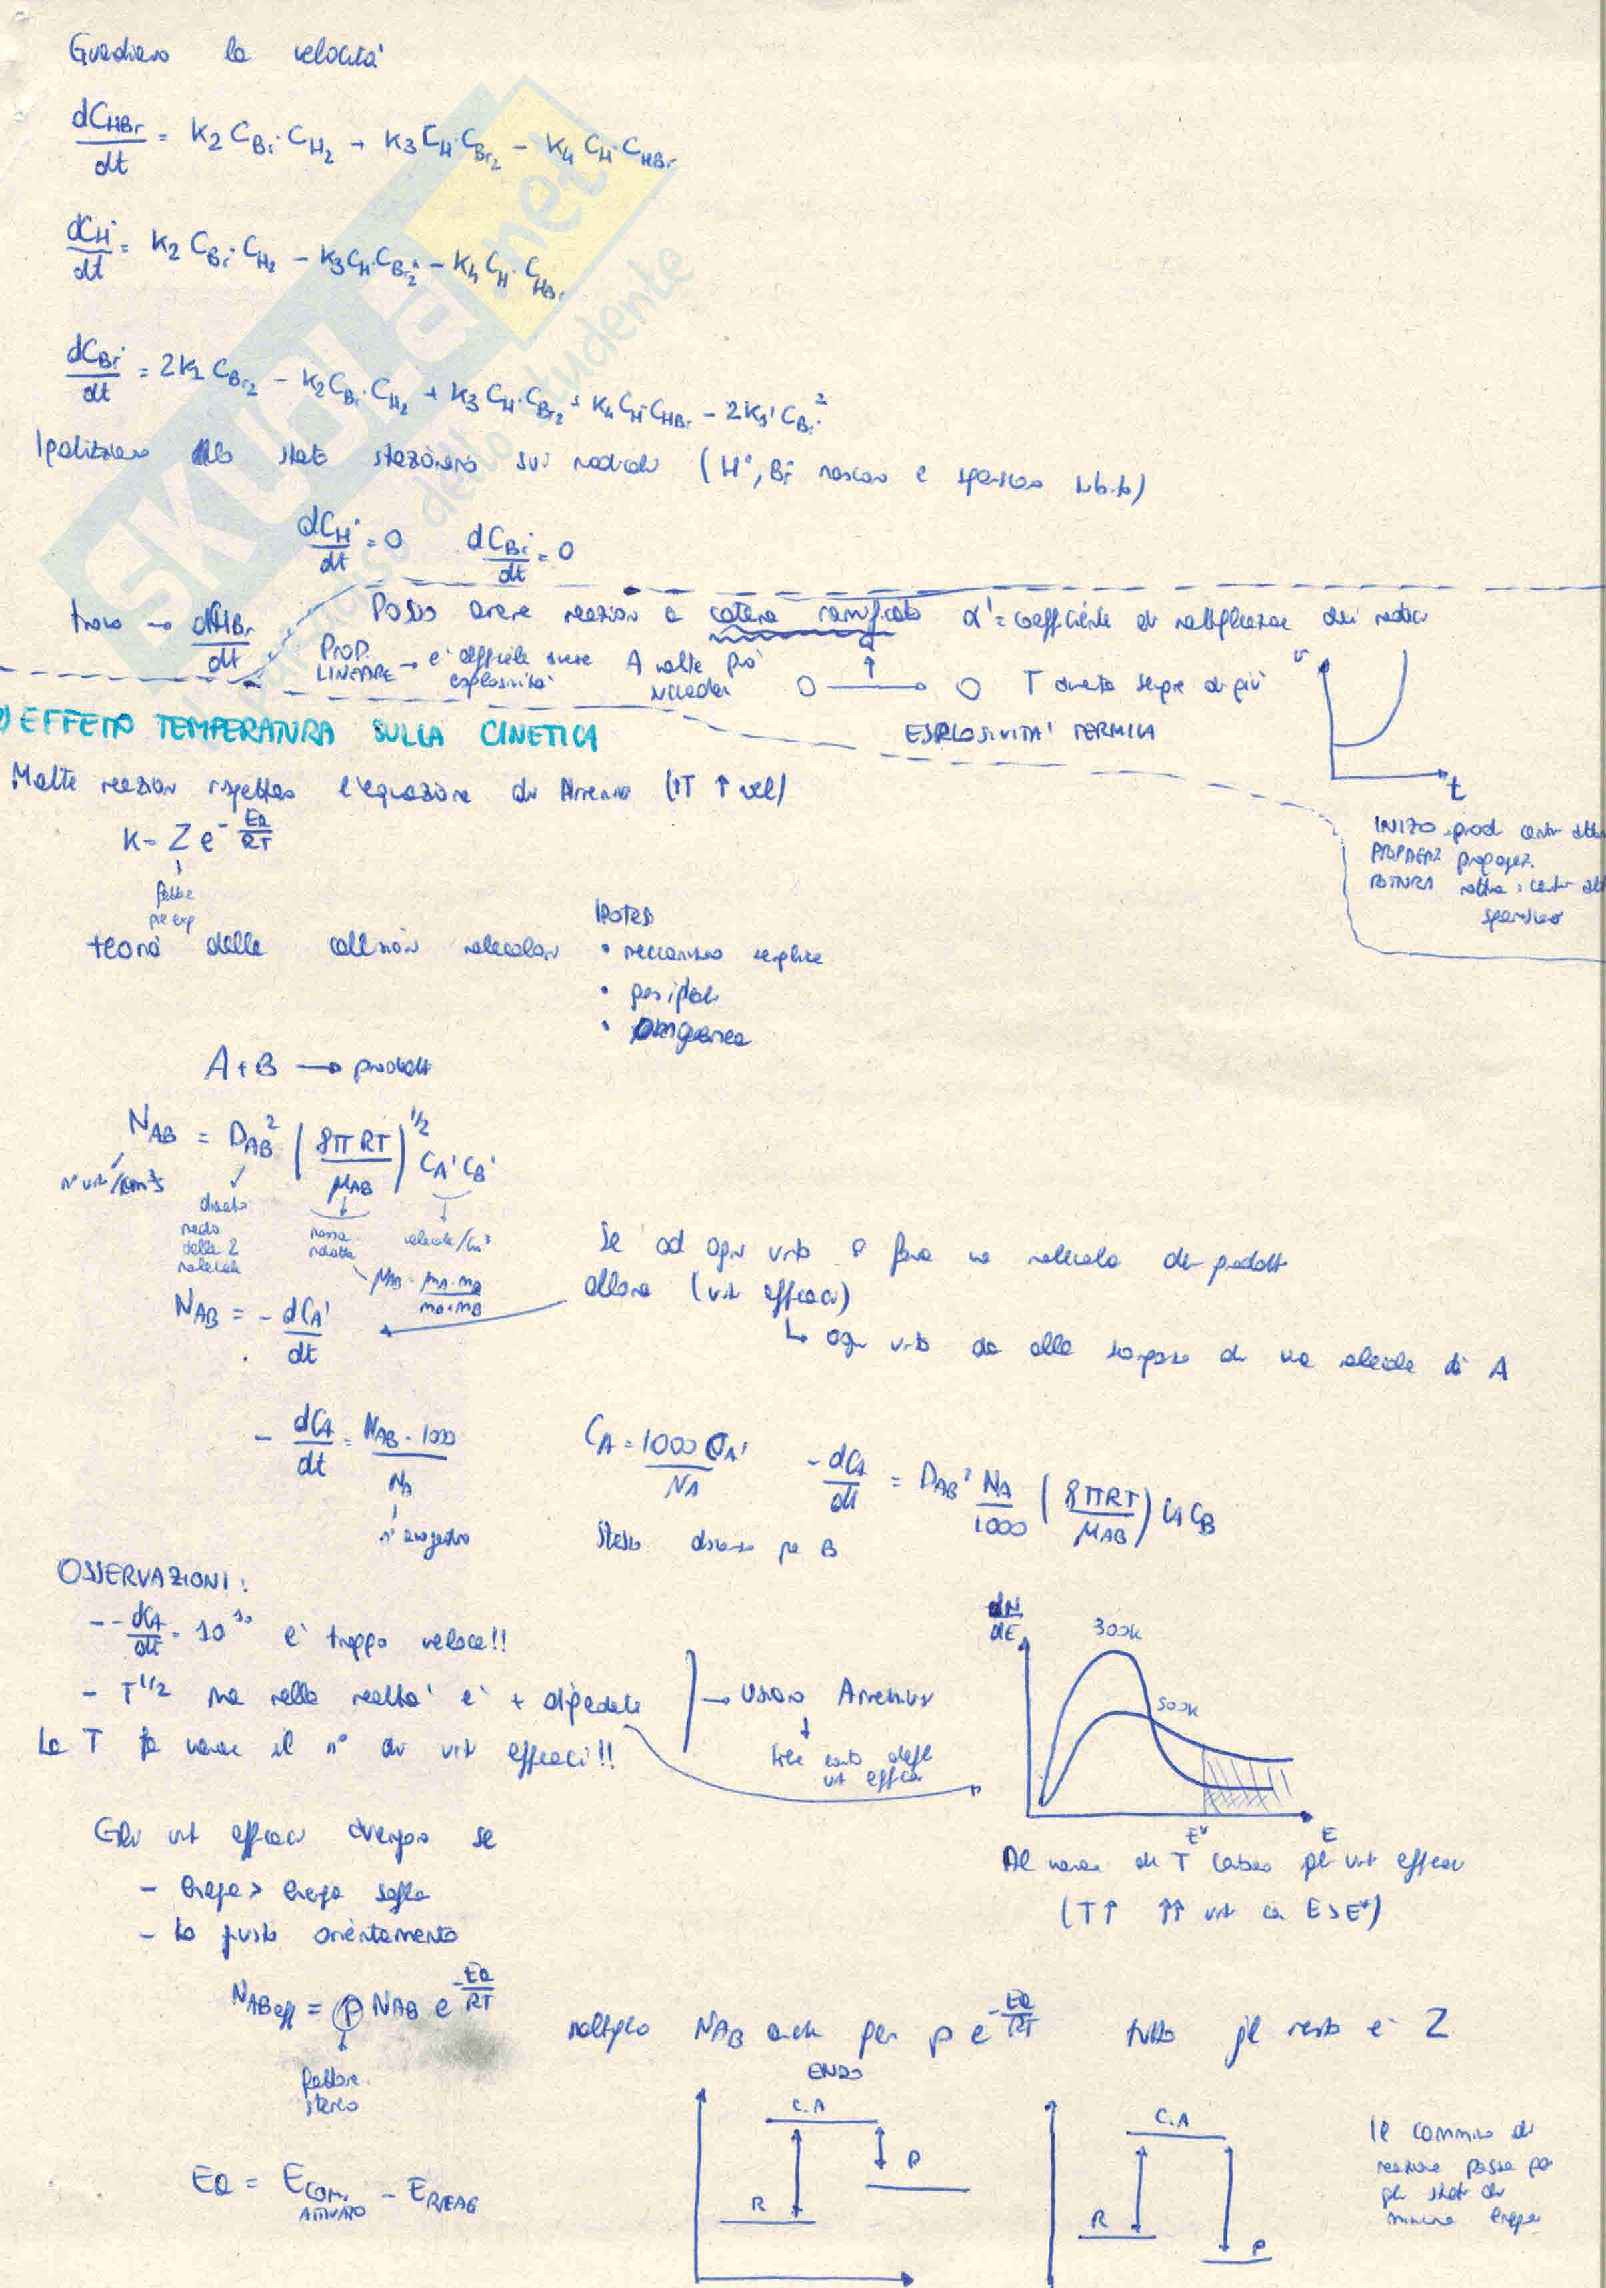 Guardiamo la velocità
dC_HBr/dt = K2 C_Br· C_H2 + K3 C_H· C_Br2 - K4 C_H· C_HBr
dC_H·/dt = K2 C_Br· C_H2 - K3 C_H· C_Br2 - K4 C_H· C_HBr
dC_Br·/dt = 2K1 C_Br2 - K2 C_Br· C_H2 + K3 C_H· C_Br2 + K4 C_H· C_HBr - 2K1' C_Br·²
Ipotizziamo lo stato stazionario sui radicali (H°, Br· nascono e spariscono subito)
dC_H·/dt = 0 dC_Br·/dt = 0
trovo → dC_HBr/dt
Posso avere reazioni a catena ramificata α' = coefficiente di moltiplicazione dei radicali
PROP. LINEARE → è difficile avere esplosività
A volte può succedere
O → O T aumenta sempre di più
ESPLOSIVITA' TERMICA
v
t
INIZO prod centri attivi
PROPAGAZ propagaz.
ROTTURA rottura: centri att
spariscono
) EFFETTO TEMPERATURA SULLA CINETICA
Molte reazioni rispettano l'equazione di Arrenius (↑T ↑ vel)
K = Z e^-Ea/RT
fattore pre exp
teoria delle collisioni molecolari
IPOTESI
• meccanismo semplice
• gas ideale
• omogenea
A + B → prodotti
N_AB = D_AB² (8π RT/μ_AB)^1/2 C_A' C_B'
n° urti/cm³s
diametro medio delle 2 molecole
massa ridotta
molecole/cm³
μ_AB = m_A · m_B / m_A + m_B
Se ad ogni urto si forma una molecola di prodotto
allora (urti efficaci)
↳ ogni urto da alla scomparsa di una molecola di A
N_AB = - dC_A'/dt
- dC_A/dt = N_AB · 1000/N_A
n° avogadro
C_A = 1000 C_A'/N_A
- dC_A/dt = D_AB² N_A/1000 (8πRT/μ_AB) C_A C_B
Stesso discorso per B
OSSERVAZIONI:
- - dC_A/dt = 10^10 è troppo veloce!!
- T^1/2 ma nella realtà è + dipendente
→ Usiamo Arrenius
tiene conto degli urti efficaci
La T fa variare il n° di urti efficaci!!
dN/dE
300K
500K
E*
E
Al variare di T cambiano gli urti efficaci
(T↑ ↑↑ urti con E>E*)
Gli urti efficaci avvengono se
- Energia > energia soglia
- Ho giusto orientamento
N_ABeff = P N_AB e^-Ea/RT
fattore sterico
moltiplico N_AB anche per p e^-Ea/RT tutto il resto è Z
ENDO
C.A
R
P
C.A
R
P
Il cammino di
reazione passa per
gli stati di
minima energia
Ea = E_COMP. ATTIVATO - E_REAG
SKUOLA.net
paradiso dello studente